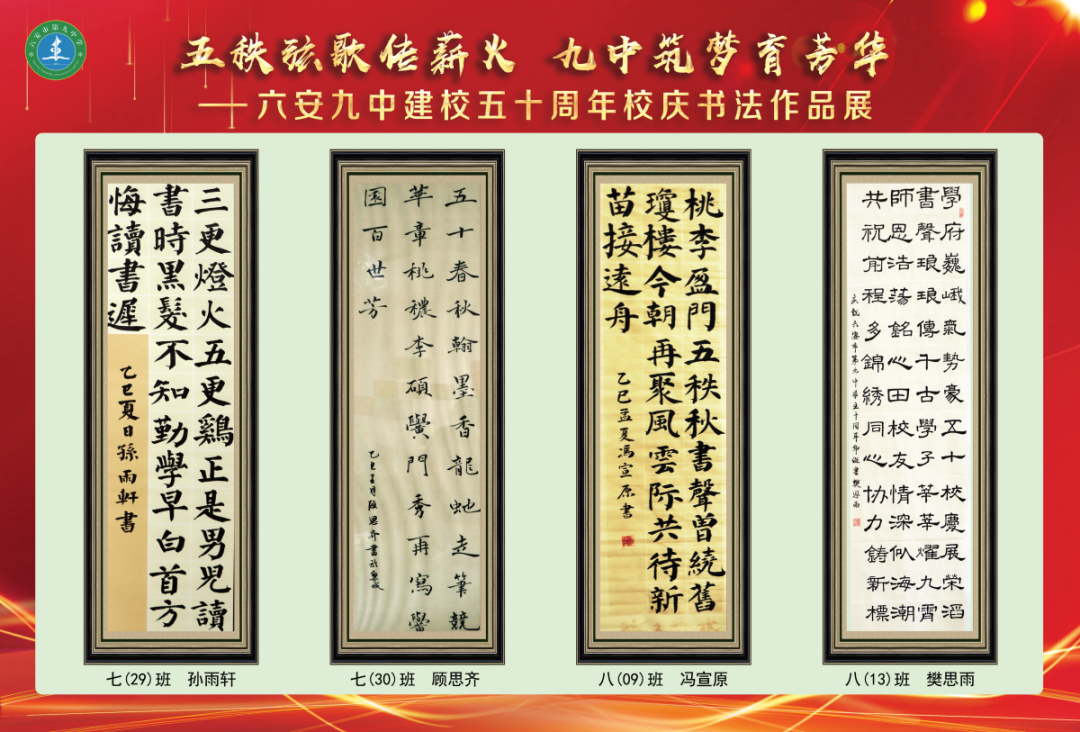 六安市第九中学
五秩弦歌传薪火 九中筑梦育芳华
——六安九中建校五十周年校庆书法作品展
三更燈火五更鷄正是男児讀
書時黑髮不知勤學早白首方
悔讀書遲
乙巳夏日孫雨軒書
七(29)班 孙雨轩
五十春秋翰墨香龍虵走筆競
華章桃穠李碩黌門秀再寫黌
园百世芳
思齊書
七(30)班 顾思齐
桃李盈門五秩秋書聲曾繞舊
瓊樓今朝再聚風雲际共待新
苗接遠舟
乙巳孟夏馮宣原書
八(09)班 冯宣原
學府巍峨氣勢豪五十校慶展榮滔
書聲琅琅傳千古學子莘莘耀九霄
師恩浩蕩銘心田校友情深似海潮
共祝前程多錦綉同心协力鑄新標
六安市第九中學五十周年
八(13)班 樊思雨